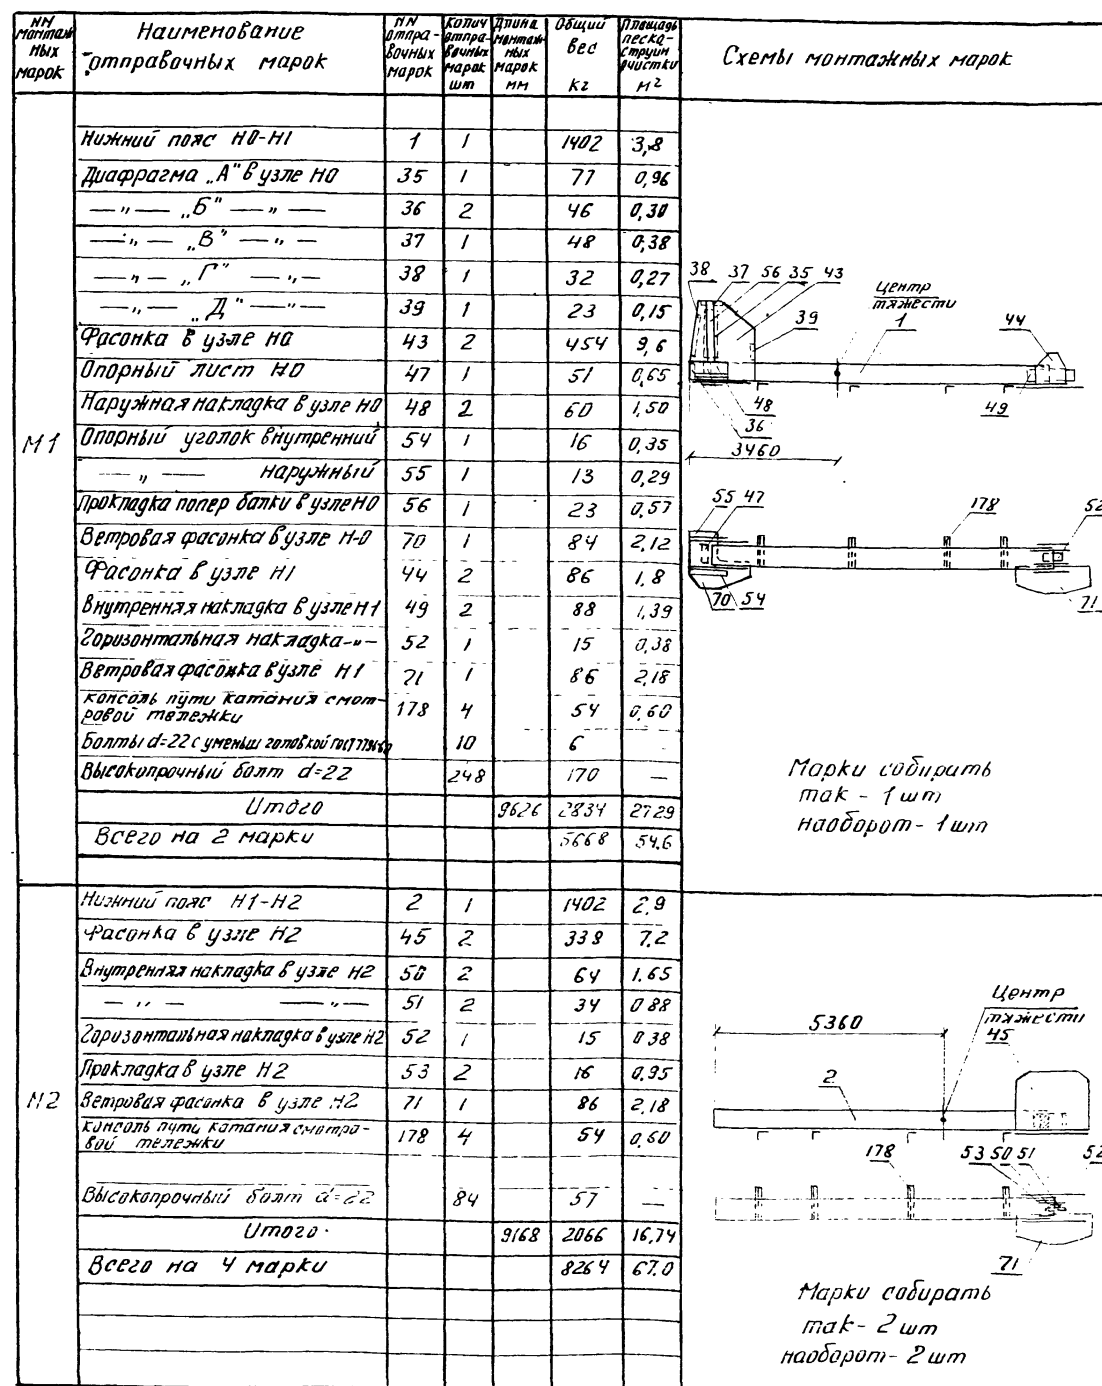 NN монтажных марок
Наименование отправочных марок
NN отправочных марок
Колич отправочных марок шт
Длина монтажных марок мм
Общий вес кг
Площадь пескоструйн очистки м²
Схемы монтажных марок
М1
Нижний пояс Н0-Н1 1 1 1402 3,8
Диафрагма „А" в узле Н0 35 1 77 0,96
— „ — „Б" — „ — 36 2 46 0,30
— „ — „В" — „ — 37 1 48 0,38
— „ — „Г" — „ — 38 1 32 0,27
— „ — „Д" — „ — 39 1 23 0,15
Фасонка в узле Н0 43 2 454 9,6
Опорный лист Н0 47 1 51 0,65
Наружная накладка в узле Н0 48 2 60 1,50
Опорный уголок внутренний 54 1 16 0,35
— „ — наружный 55 1 13 0,29
Прокладка попер балки в узле Н0 56 1 23 0,57
Ветровая фасонка в узле Н-0 70 1 84 2,12
Фасонка в узле Н1 44 2 86 1,8
Внутренняя накладка в узле Н1 49 2 88 1,39
Горизонтальная накладка -„- 52 1 15 0,38
Ветровая фасонка в узле Н1 71 1 86 2,18
консоль пути катания смотровой тележки 178 4 54 0,60
Болты d=22 с уменьш головкой ГОСТ 10 6
Высокопрочный болт d=22 248 170 —
Итого 9626 2834 27.29
Всего на 2 марки 5668 54.6
38 37 56 35 43
39
Центр
тяжести
1
44
48
36
49
3460
55 47
178
52
70 54
71
Марки собирать
так - 1 шт
наоборот - 1 шт
М2
Нижний пояс Н1-Н2 2 1 1402 2,9
Фасонка в узле Н2 45 2 338 7,2
Внутренняя накладка в узле Н2 50 2 64 1.65
— „ — — „ — 51 2 34 0 88
Горизонтальная накладка в узле Н2 52 1 15 0 38
Прокладка в узле Н2 53 2 16 0,95
Ветровая фасонка в узле Н2 71 1 86 2,18
консоль пути катания смотровой тележки 178 4 54 0,60
Высокопрочный болт d=22 84 57 —
Итого 9168 2066 16,74
Всего на 4 марки 8264 67.0
5360
Центр
тяжести
45
2
178
53 50 51
52
71
Марки собирать
так - 2 шт
наоборот - 2 шт